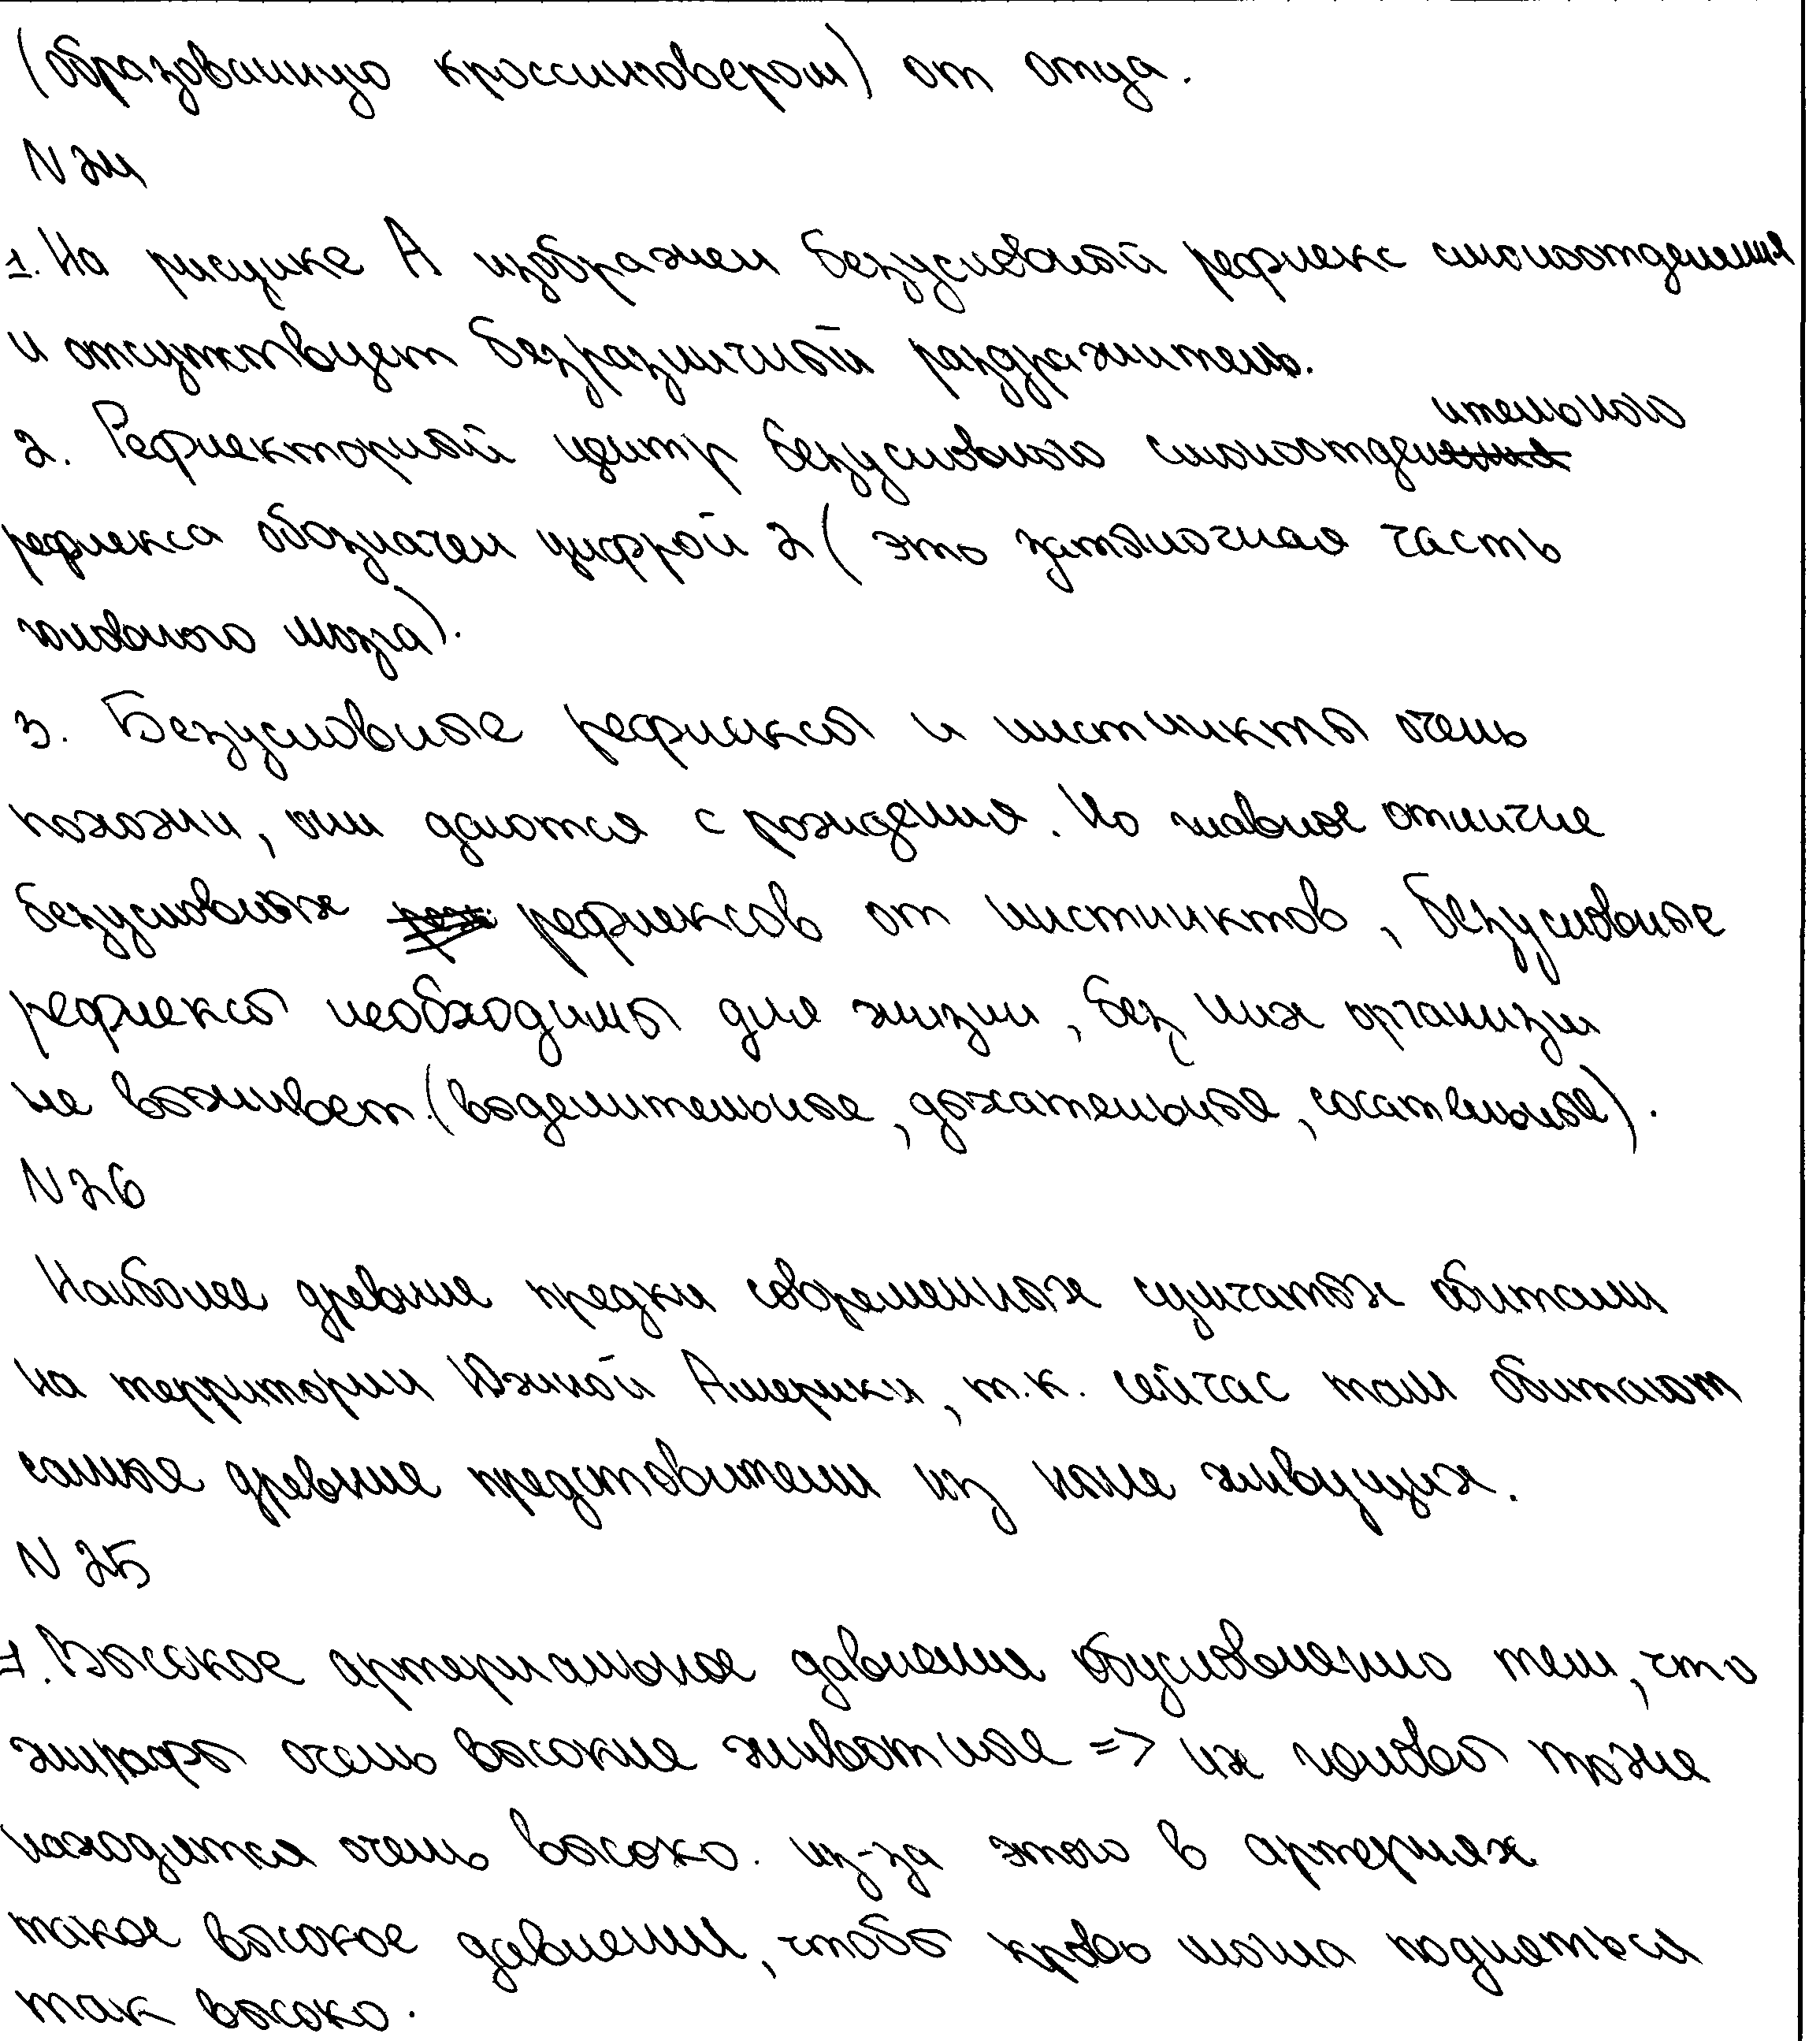 (образованную кроссинговером) от отца.
N 24
1. На рисунке А изображен безусловный рефлекс слюноотделения
и отсутствует безразличный раздражитель.
2. Рефлекторный центр безусловного слюноотделительного
рефлекса обозначен цифрой 2 (это затылочная часть
головного мозга).
3. Безусловные рефлексы и инстинкты очень
похожи, они даются с рождения. Но главное отличие
безусловных рефлексов от инстинктов, безусловные
рефлексы необходимы для жизни, без них организм
не выживет. (выделительные, дыхательные, сосательные).
N 26
Наиболее древние предки современных сумчатых обитали
на территории Южной Америки, т.к. сейчас там обитают
самые древние представители из ныне живущих.
N 25
1. Высокое артериальное давление обусловленно тем, что
жирафы очень высокие животные => их головы тоже
находятся очень высоко. Из-за этого в артериях
такое высокое давлении, чтобы кровь могла подняться
так высоко.